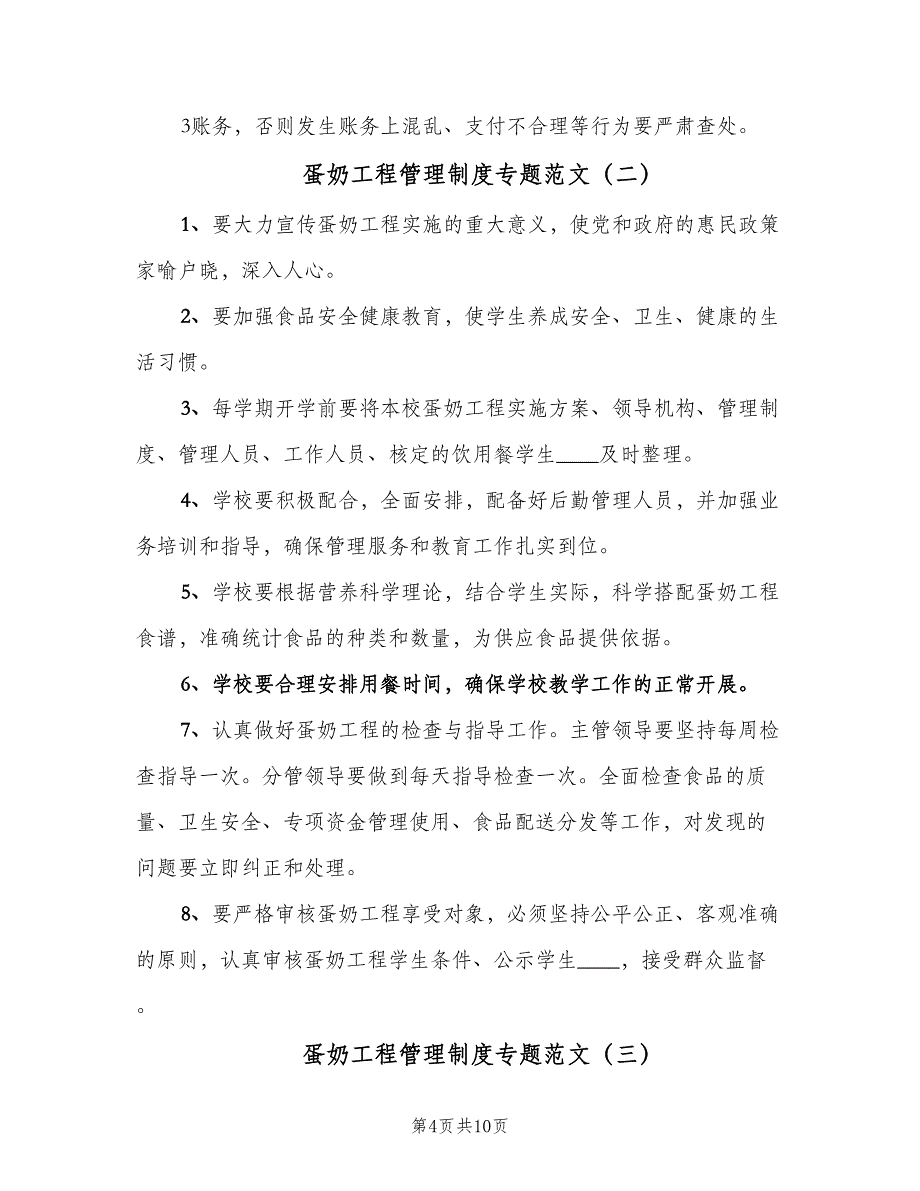 3账务，否则发生账务上混乱、支付不合理等行为要严肃查处。
蛋奶工程管理制度专题范文（二）
1、要大力宣传蛋奶工程实施的重大意义，使党和政府的惠民政策
家喻户晓，深入人心。
2、要加强食品安全健康教育，使学生养成安全、卫生、健康的生
活习惯。
3、每学期开学前要将本校蛋奶工程实施方案、领导机构、管理制
度、管理人员、工作人员、核定的饮用餐学生____及时整理。
4、学校要积极配合，全面安排，配备好后勤管理人员，并加强业
务培训和指导，确保管理服务和教育工作扎实到位。
5、学校要根据营养科学理论，结合学生实际，科学搭配蛋奶工程
食谱，准确统计食品的种类和数量，为供应食品提供依据。
6、学校要合理安排用餐时间，确保学校教学工作的正常开展。
7、认真做好蛋奶工程的检查与指导工作。主管领导要坚持每周检
查指导一次。分管领导要做到每天指导检查一次。全面检查食品的质
量、卫生安全、专项资金管理使用、食品配送分发等工作，对发现的
问题要立即纠正和处理。
8、要严格审核蛋奶工程享受对象，必须坚持公平公正、客观准确
的原则，认真审核蛋奶工程学生条件、公示学生____，接受群众监督
。
蛋奶工程管理制度专题范文（三）
第4页共10页